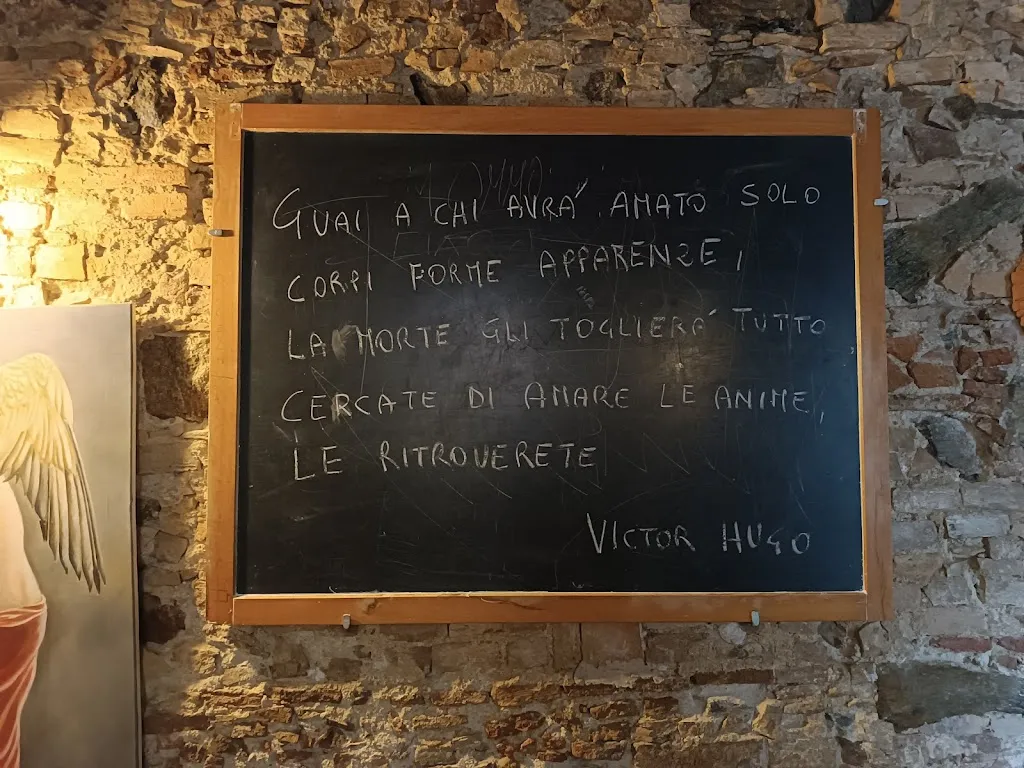 GUAI A CHI AVRA' AMATO SOLO
CORPI FORME APPARENZE,
LA MORTE GLI TOGLIERA' TUTTO
CERCATE DI AMARE LE ANIME,
LE RITROVERETE
VICTOR HUGO